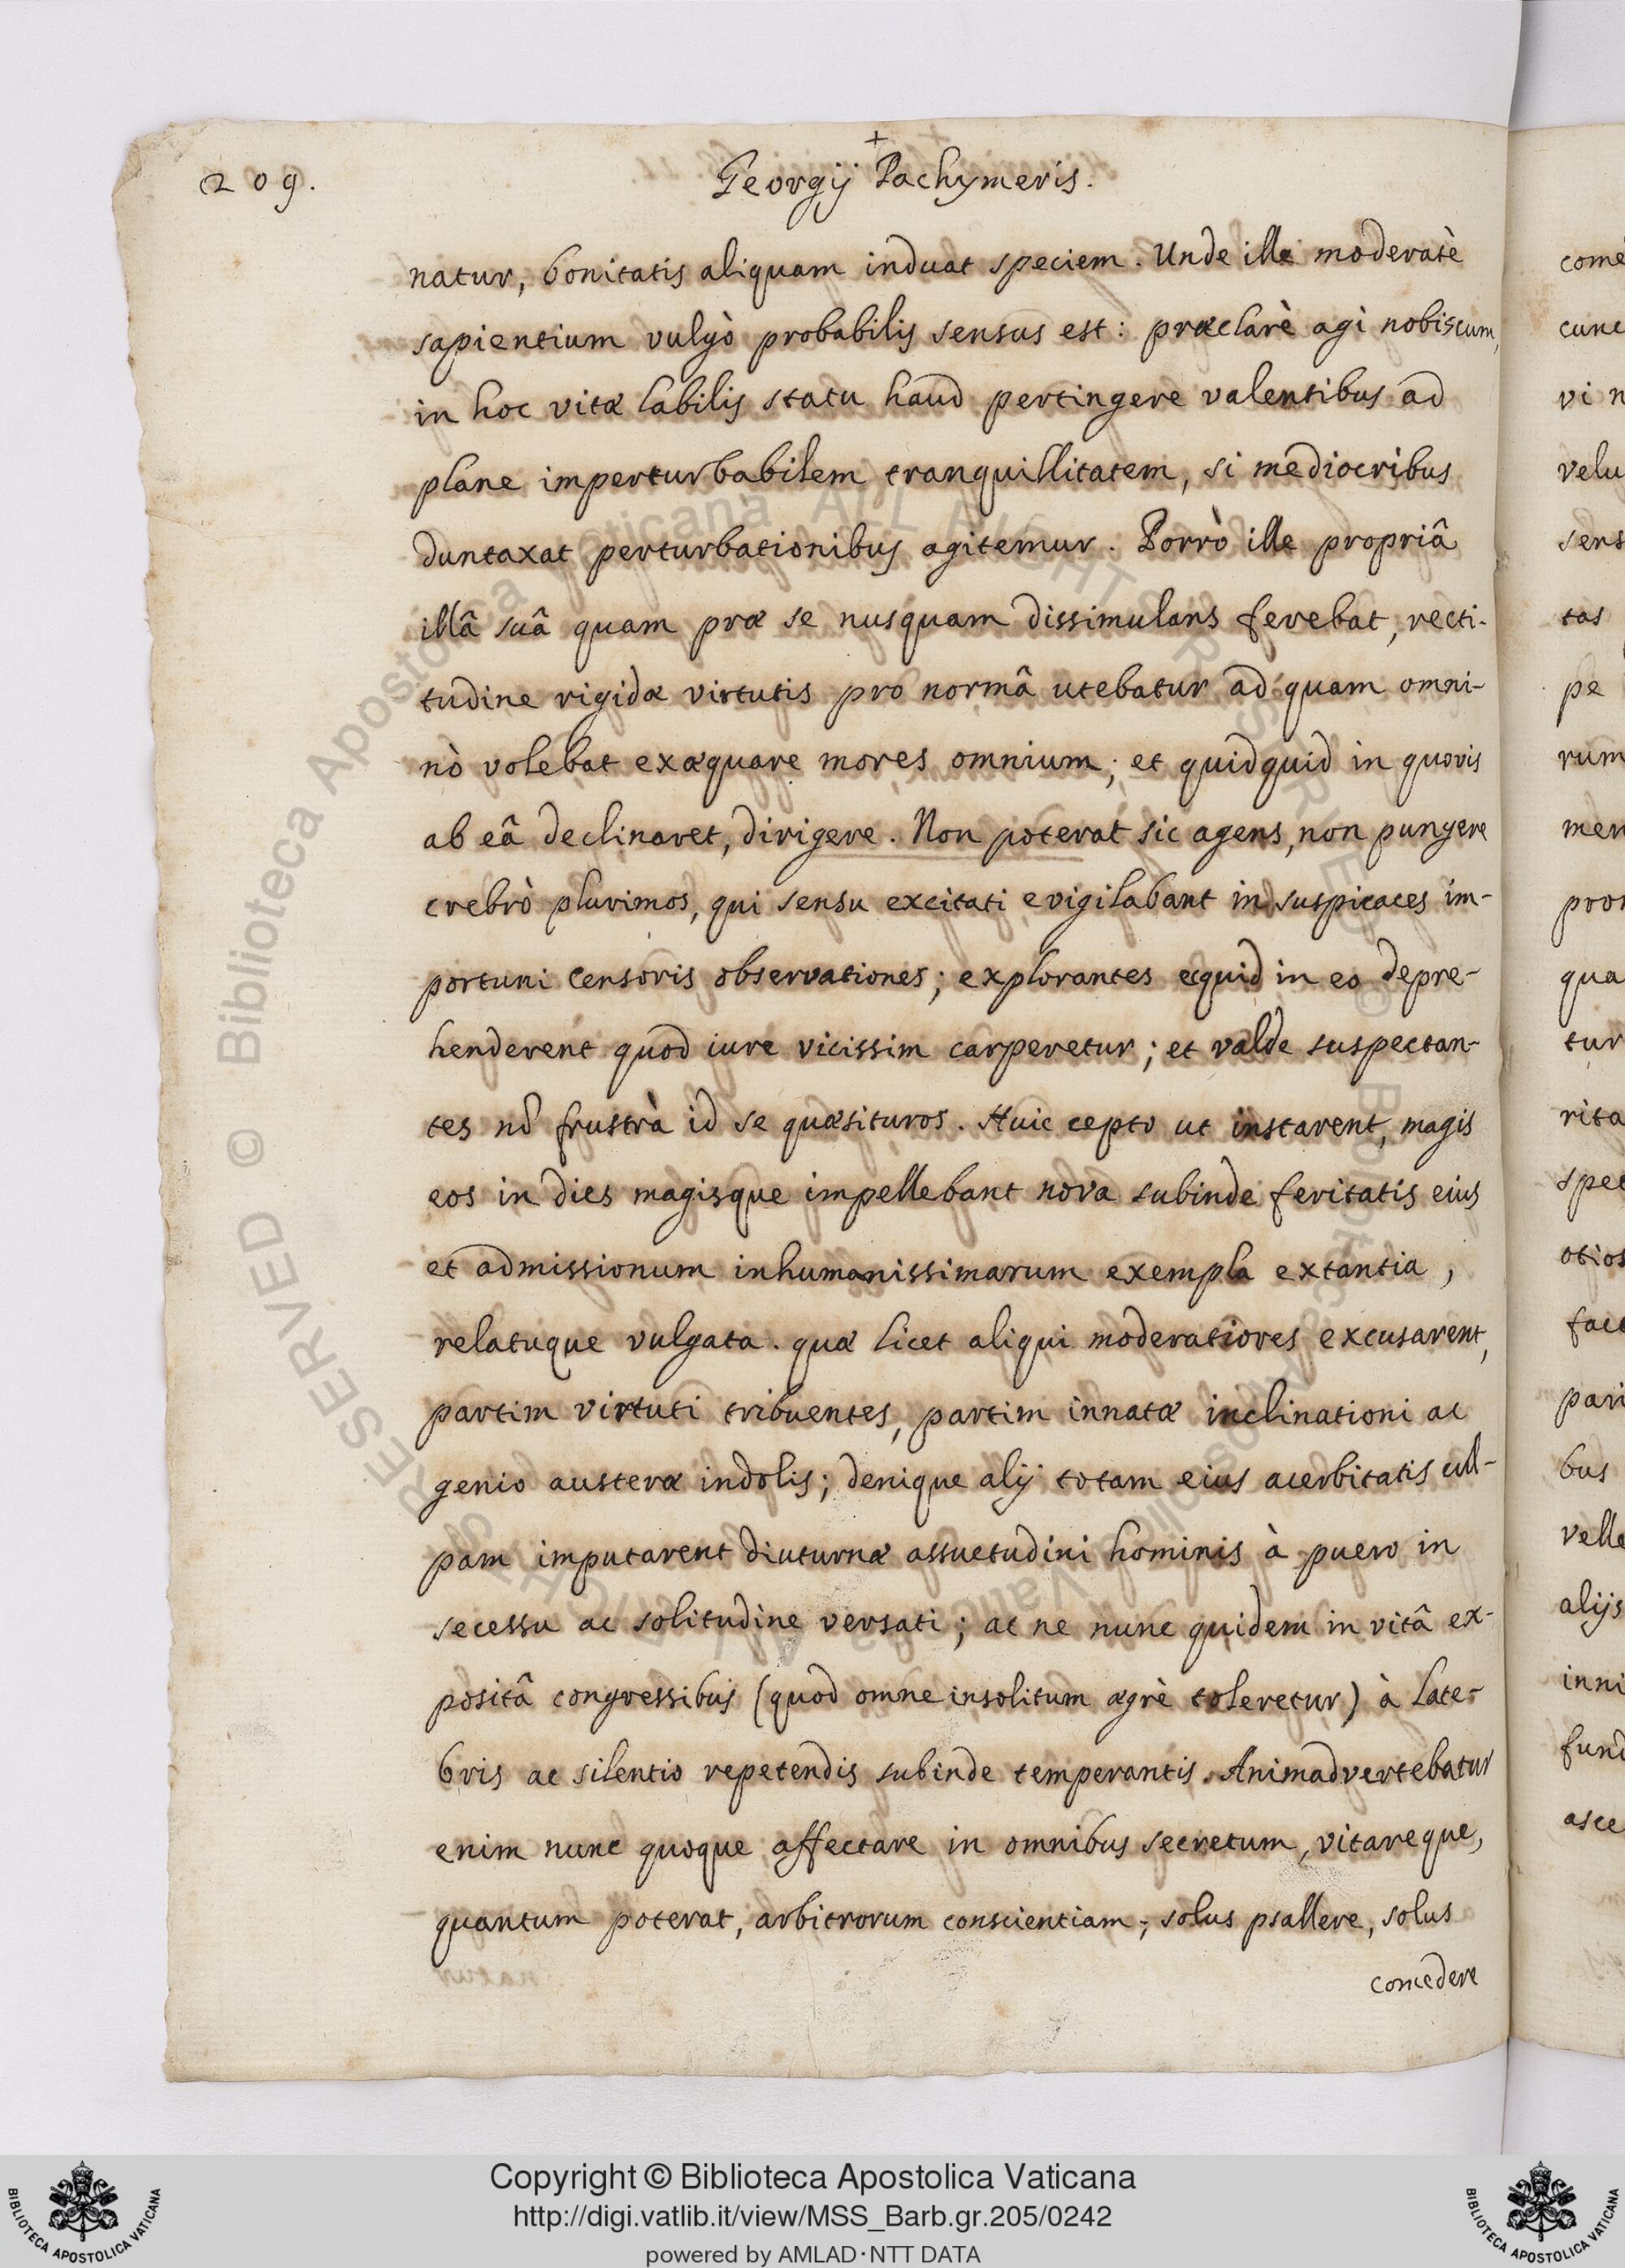 209.
+
Georgij Pachymeris.
natur, bonitatis aliquam induat speciem. Unde ille moderatè
sapientium vulgò probabilis sensus est: præclarè agi nobiscum,
in hoc vitæ labilis statu haud pertingere valentibus ad
plane imperturbabilem tranquillitatem, si mediocribus
duntaxat perturbationibus agitemur. Porrò ille propriâ
illâ suâ quam præ se nusquam dissimulans ferebat, recti-
tudine rigidæ virtutis pro normâ utebatur ad quam omni-
nò volebat exæquare mores omnium; et quidquid in quovis
ab eâ declinaret, dirigere. Non poterat sic agens, non pungere
crebrò plurimos, qui sensu excitati evigilabant in suspicaces im-
portuni censoris observationes; explorantes ecquid in eo depre-
henderent quod iure vicissim carperetur; et valde suspectan-
tes nō frustrà id se quæsituros. Huic cepto ut instarent, magis
eos in dies magisque impellebant nova subinde feritatis eius
et admissionum inhumanissimarum exempla extantia,
relatuque vulgata. quæ licet aliqui moderatiores excusarent,
partim virtuti tribuentes, partim innatæ inclinationi ac
genio austeræ indolis; denique alij totam eius acerbitatis cul-
pam imputarent diuturnæ assuetudini hominis à puero in
secessu ac solitudine versati; ac ne nunc quidem in vitâ ex-
positâ congressibus (quod omne insolitum ægrè toleretur) à late-
bris ac silentio repetendis subinde temperantis. Animadvertebatur
enim nunc quoque affectare in omnibus secretum, vitareque,
quantum poterat, arbitrorum conscientiam; solus psallere, solus
comedere
come
cunc
vi n
velu
sens
tas
pe
rum
men
pro
qua
tur
rita
spec
otios
fact
pari
bus
velle
alijs
inni
fund
asce
© Biblioteca Apostolica Vaticana ALL RIGHTS RESERVED © Biblioteca Apostolica Vaticana ALL RIGHTS RESERVED
Copyright © Biblioteca Apostolica Vaticana
http://digi.vatlib.it/view/MSS_Barb.gr.205/0242
powered by AMLAD·NTT DATA
BIBLIOTECA APOSTOLICA VATICANA
BIBLIOTECA APOSTOLICA VATICANA